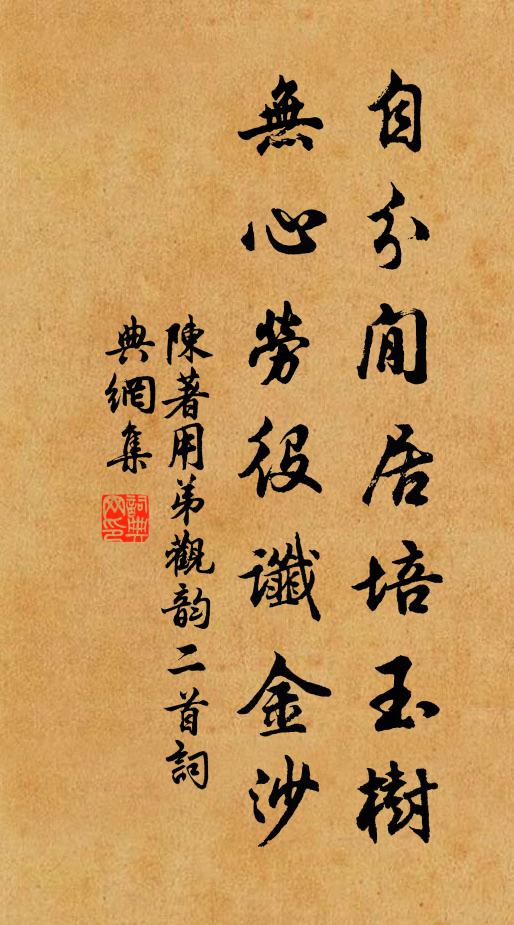 自分閒居培玉樹
無心勞役讖金沙
陳著用弟觀韵二首詞
典網集
詞典網印